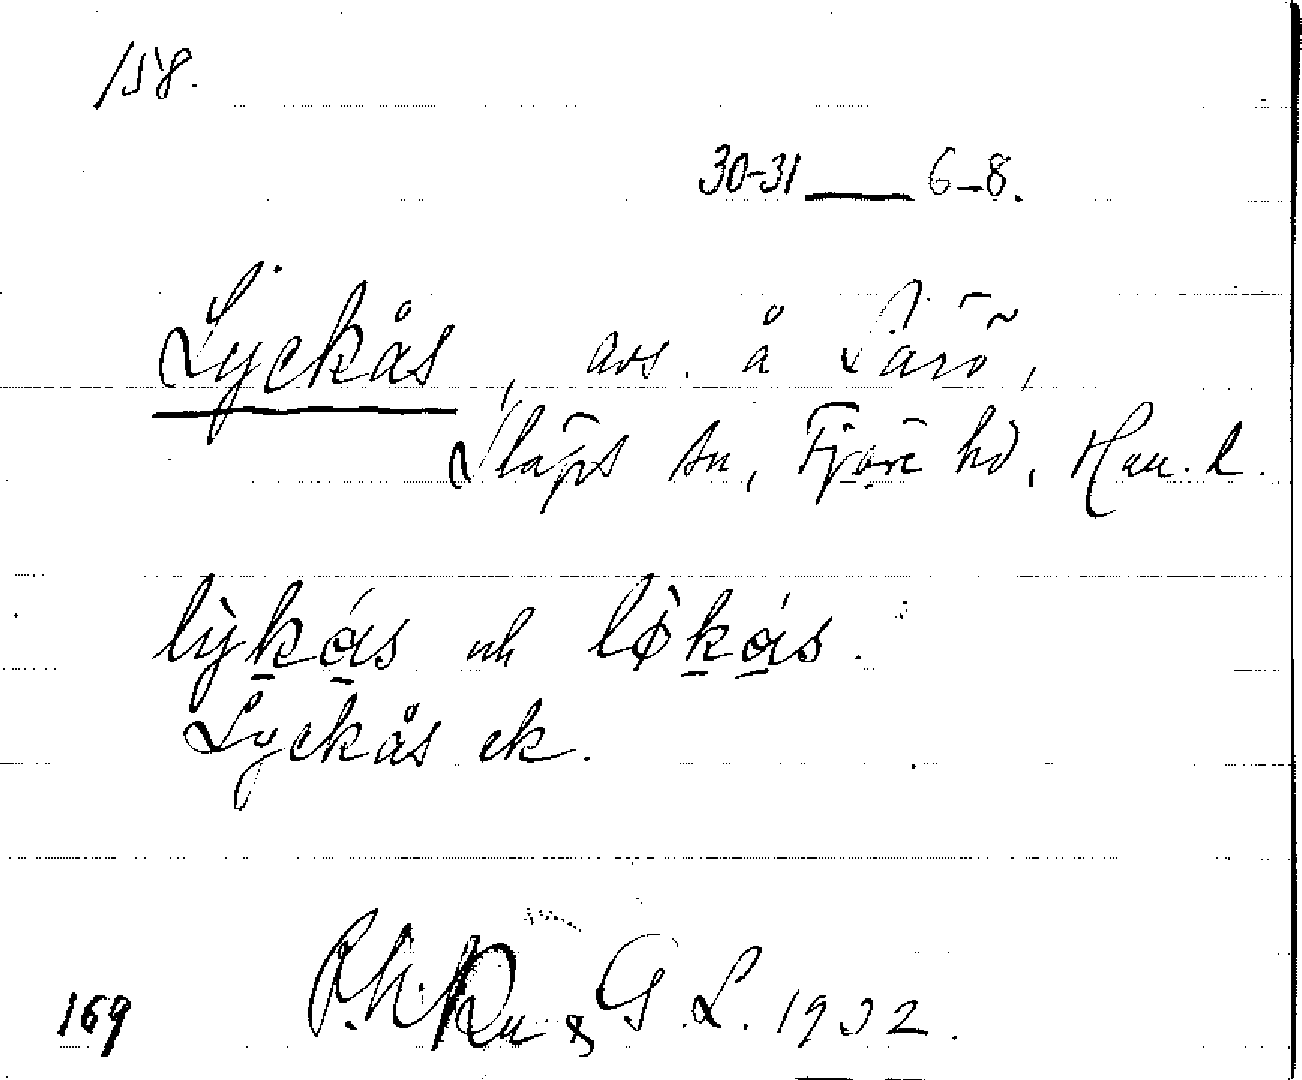 158.
30-31 — 6-8.
Lyckås, avs. å Särö,
Släps sn, Fjäre hd, Hall. l.
lỳkás och lø̀kás.
Lyckås ek.
& G. L. 1932.
169